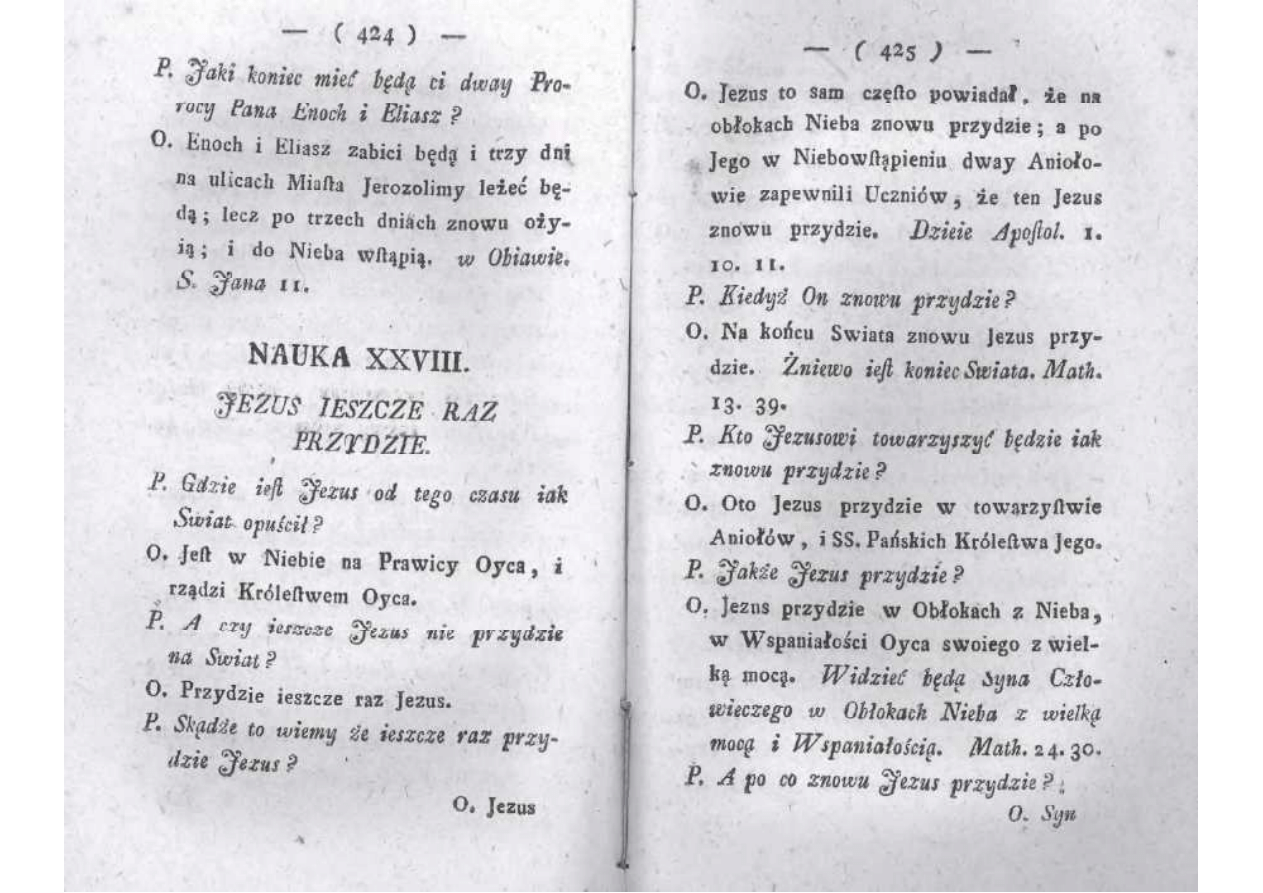 — ( 424 ) —
P. Jaki koniec mieć będą ci dway Pro-
rocy Pana Enoch i Eliasz ?
O. Enoch i Eliasz zabici będą i trzy dni
na ulicach Miaſta Jerozolimy leżeć bę-
dą ; lecz po trzech dniach znowu oży-
ią ; i do Nieba wſtąpią. w Obiawie.
S. Jana 11.
NAUKA XXVIII.
JEZUS IESZCZE RAZ
PRZYDZIE.
P. Gdzie ieſt Jezus od tego czasu iak
Swiat opuścił ?
O. Jeſt w Niebie na Prawicy Oyca , i
rządzi Króleſtwem Oyca.
P. A czy ieszcze Jezus nie przydzie
na Swiat ?
O. Przydzie ieszcze raz Jezus.
P. Skądże to wiemy że ieszcze raz przy-
dzie Jezus ?
O. Jezus
— ( 425 ) —
O. Jezus to sam częſto powiadał, że na
obłokach Nieba znowu przydzie ; a po
Jego w Niebowſtąpieniu dway Anioło-
wie zapewnili Uczniów , że ten Jezus
znowu przydzie. Dzieie Apoſtol. 1.
10. 11.
P. Kiedyż On znowu przydzie ?
O. Na końcu Swiata znowu Jezus przy-
dzie. Żniewo ieſt koniec Swiata. Math.
13. 39.
P. Kto Jezusowi towarzyszyć będzie iak
znowu przydzie ?
O. Oto Jezus przydzie w towarzyſtwie
Aniołów , i SS. Pańskich Króleſtwa Jego.
P. Jakże Jezus przydzie ?
O. Jezus przydzie w Obłokach z Nieba,
w Wspaniałości Oyca swoiego z wiel-
ką mocą. Widzieć będą Syna Czło-
wieczego w Obłokach Nieba z wielką
mocą i Wspaniałością. Math. 24. 30.
P. A po co znowu Jezus przydzie ?
O. Syn